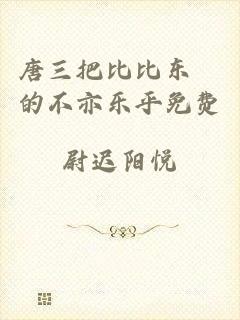 唐三把比比东
的不亦乐乎免费
尉迟阳悦